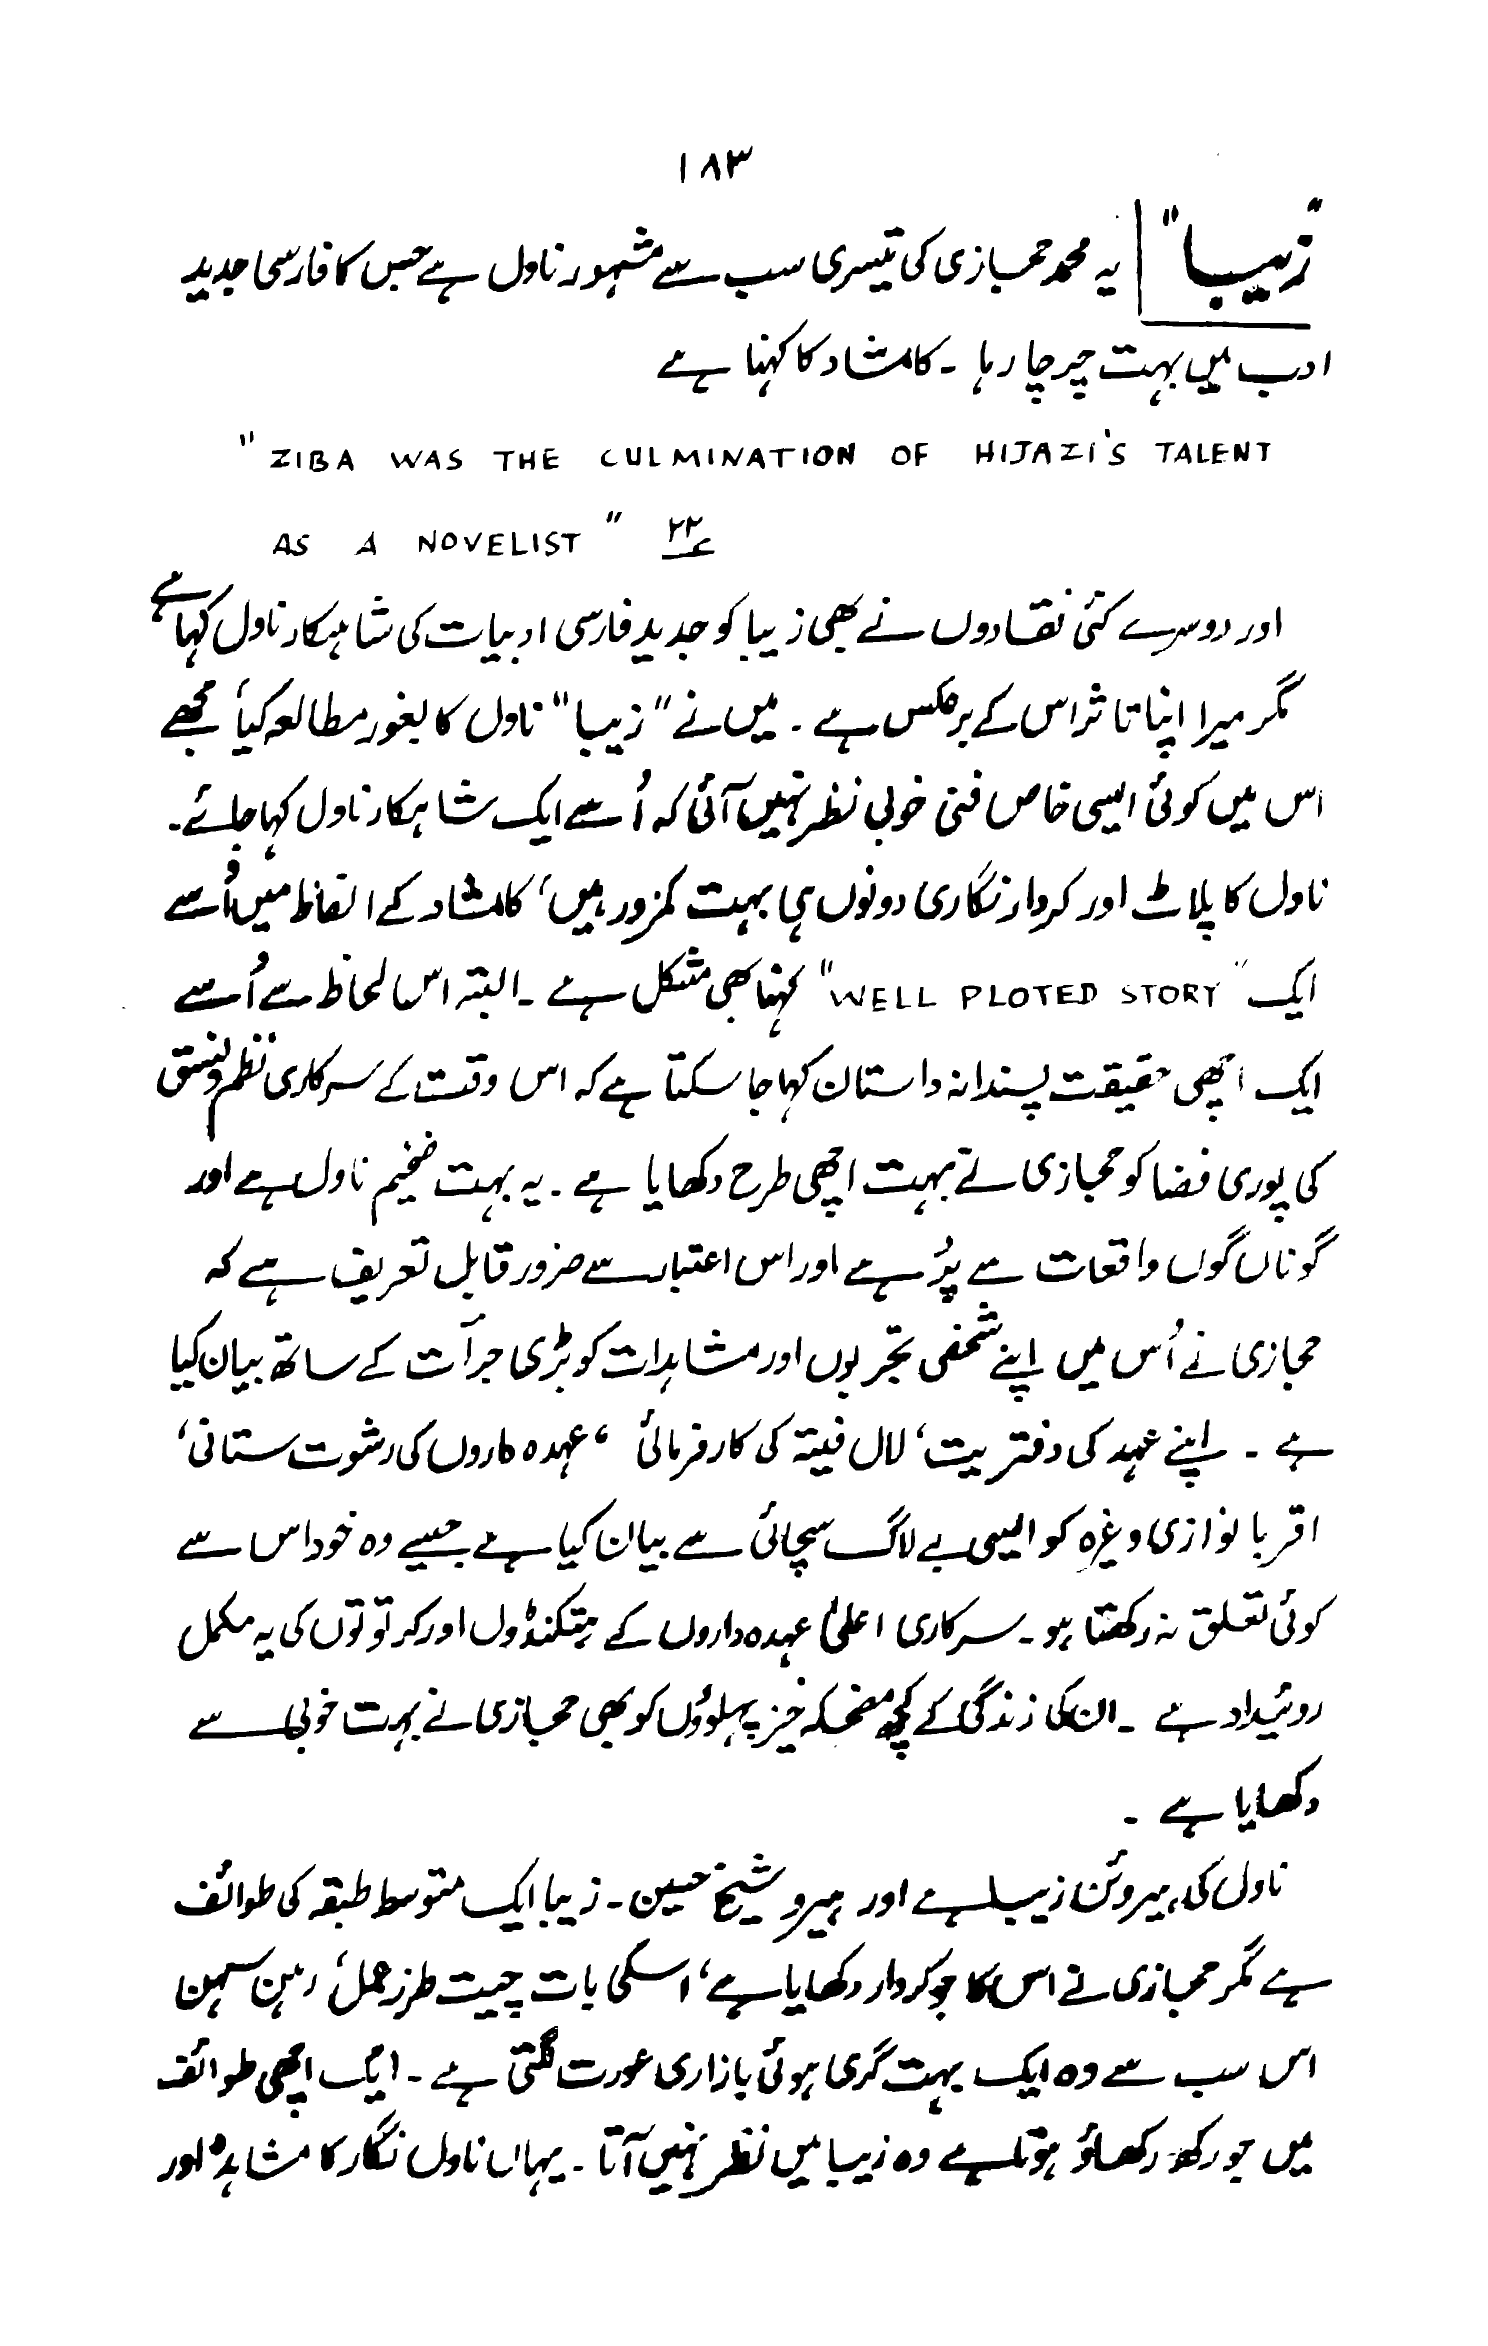 ۱۸۳
"زیبا" یہ محمد حجازی کی تیسری سب سے مشہور ناول ہے جس کا فارسی جدید
ادب میں بہت چرچا رہا ۔ کامشاد کا کہنا ہے
"ZIBA WAS THE CULMINATION OF HIJAZI'S TALENT
AS A NOVELIST" ۲۲؏
اور دوسرے کئی نقادوں نے بھی زیبا کو جدید فارسی ادبیات کی شاہکار ناول کہا ہے
مگر میرا اپنا تاثر اس کے برعکس ہے ۔ میں نے "زیبا" ناول کا بغور مطالعہ کیا، مجھے
اس میں کوئی ایسی خاص فنی خوبی نظر نہیں آئی کہ اُسے ایک شاہکار ناول کہا جائے۔
ناول کا پلاٹ اور کردار نگاری دونوں ہی بہت کمزور ہیں، کامشاد کے الفاظ میں اُسے
ایک "WELL PLOTED STORY" کہنا بھی مشکل ہے ۔ البتہ اس لحاظ سے اُسے
ایک اچھی حقیقت پسندانہ داستان کہا جا سکتا ہے کہ اس وقت کے سرکاری نظم و نسق
کی پوری فضا کو حجازی نے بہت اچھی طرح دکھایا ہے ۔ یہ بہت ضخیم ناول ہے اور
گوناں گوں واقعات سے پُر ہے اور اس اعتبار سے ضرور قابل تعریف ہے کہ
حجازی نے اُس میں اپنے شخصی تجربوں اور مشاہدات کو بڑی جرآت کے ساتھ بیان کیا
ہے ۔ اپنے عہد کی دفتریت، لال فیتہ کی کارفرمائی، عہدہ داروں کی رشوت ستانی،
اقربا نوازی وغیرہ کو ایسی بے لاگ سچائی سے بیان کیا ہے جیسے وہ خود اس سے
کوئی تعلق نہ رکھتا ہو ۔ سرکاری اعلیٰ عہدہ داروں کے ہتکنڈوں اور کرتوتوں کی یہ مکمل
روئیداد ہے ۔ ان کی زندگی کے کچھ مضحکہ خیز پہلوؤں کو بھی حجازی نے بہت خوبی سے
دکھایا ہے ۔
ناول کی ہیروئن زیبا ہے اور ہیرو شیخ حسین ۔ زیبا ایک متوسط طبقہ کی طوائف
ہے مگر حجازی نے اس کا جو کردار دکھایا ہے، اسکی بات چیت طرز عمل، رہن سہن
اس سب سے وہ ایک بہت گری ہوئی بازاری عورت لگتی ہے ۔ ایک اچھی طوائف
میں جو رکھ رکھاؤ ہوتا ہے وہ زیبا میں نظر نہیں آتا ۔ یہاں ناول نگار کا مشاہدہ اور